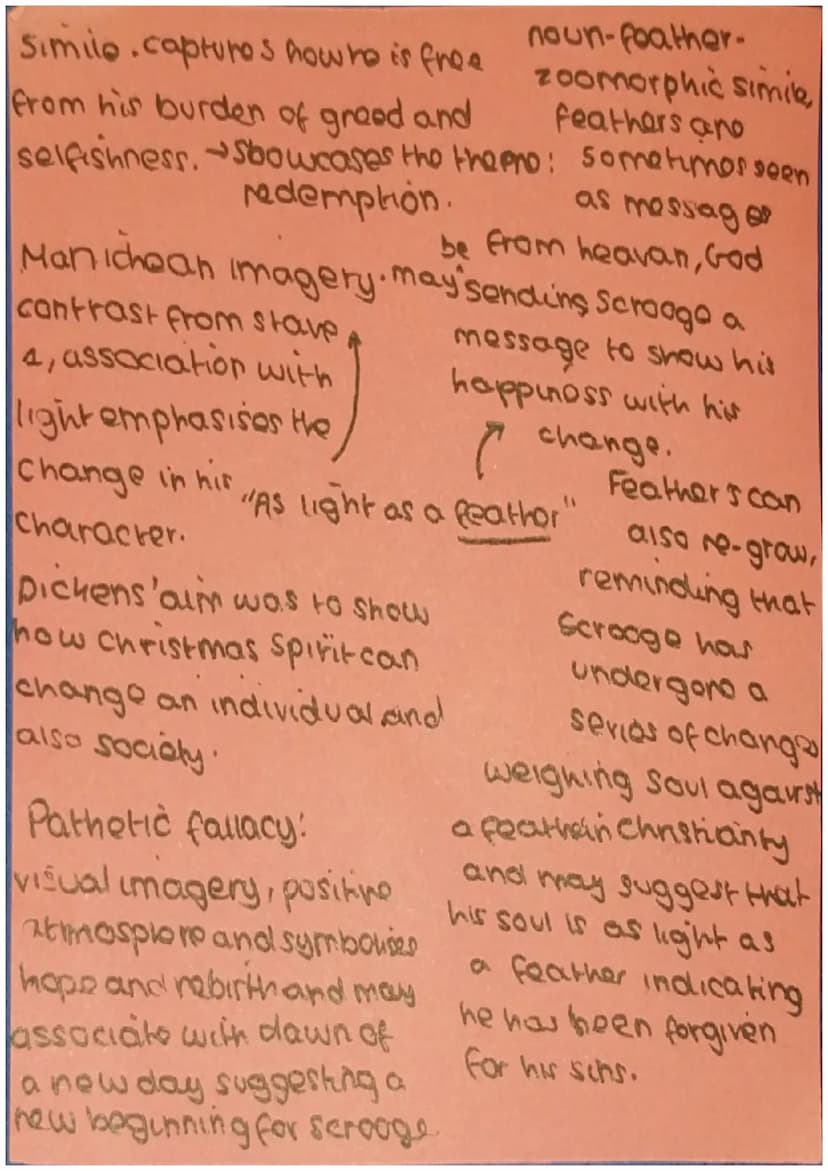 Simile. captures how he is free
from his burden of greed and
selfishness. → Showcases the theme:
redemption.
noun-feather-
zoomorphic simile,
feathers are
sometimes seen
as messages
from heavan, God
may be sending Scrooge a
message to show his
happiness with his
change.
Manichean imagery.
contrast from stave
1, association with
light emphasises the
change in his
character.
"As light as a feather"
Feathers can
also re-grow,
reminding that
Scrooge has
undergone a
series of changes
Dickens' aim was to show
how christmas spirit can
change an individual and
also society.
weighing soul against
a feather in Christianity
and may suggest that
his soul is as light as
a feather indicating
he has been forgiven
for his sins.
Pathetic fallacy:
visual imagery, positive
atmosphere and symbolises
hope and rebirth and may
associate with dawn of
a new day suggesting a
new beginning for scrooge